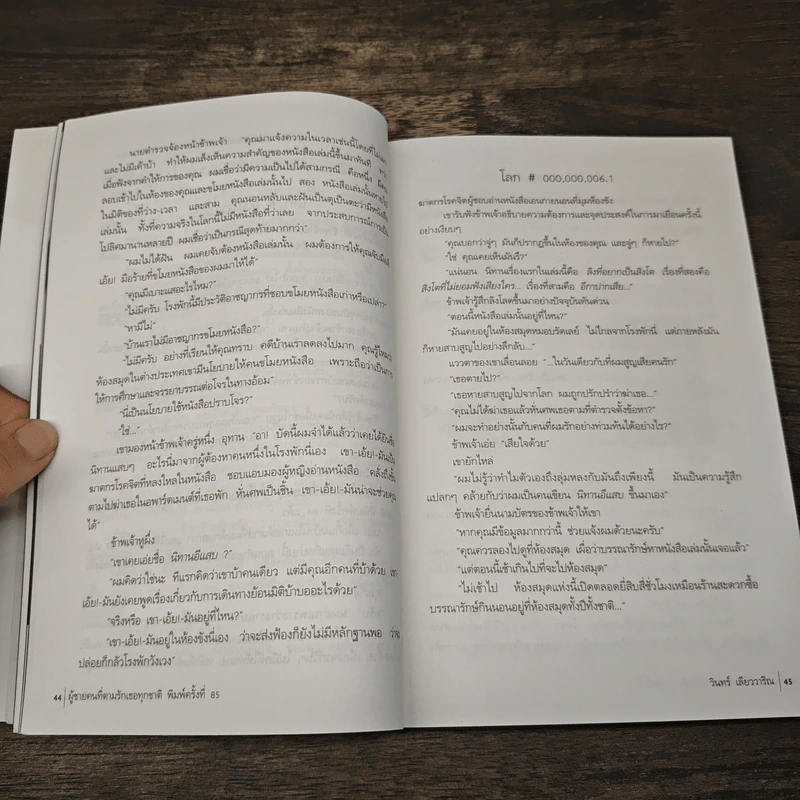 นายตำรวจจ้องหน้าข้าพเจ้า "คุณมาแจ้งความในเวลาเช่นนี้โดยที่ไม่
และไม่มีเค้าบ้า ทำให้ผมเล็งเห็นความสำคัญของหนังสือเล่มนี้ขึ้นมาทันที
เมื่อฟังจากคำให้การของคุณ ผมเชื่อว่ามีความเป็นไปได้สามกรณี คือหนึ่ง
ลอบเข้าไปในห้องของคุณและขโมยหนังสือเล่มนั้นไป สอง หนังสือเล่มนั้น
ในมิติของที่ว่าง-เวลา และสาม คุณนอนหลับและฝันเป็นตุเป็นตะว่ามีหนังสือ
เล่มนั้น ทั้งที่ความจริงในโลกนี้ไม่มีหนังสือที่ว่าเลย จากประสบการณ์การเป็น
โปลิศมานานหลายปี ผมเชื่อว่าเป็นกรณีสุดท้ายมากกว่า"
"ผมไม่ได้ฝัน ผมเคยจับต้องหนังสือเล่มนั้น ผมต้องการให้คุณจับ
เอ้ย! มือร้ายที่ขโมยหนังสือของผมมาให้ได้"
"คุณมีเบาะแสอะไรไหม?"
"ไม่มีครับ โรงพักนี้มีประวัติอาชญากรที่ชอบขโมยหนังสือเก่าหรือเปล่า"
"หามีไม่"
"บ้านเราไม่มีอาชญากรขโมยหนังสือ?"
"ไม่มีครับ อย่างที่เรียนให้คุณทราบ คดีบ้านเราลดลงไปมาก คุณรู้ไหม
ห้องสมุดในต่างประเทศเขามีนโยบายให้คนขโมยหนังสือ เพราะถือว่าเป็นการ
ให้การศึกษาและจรรยาบรรณต่อโจรในทางอ้อม"
"นี่เป็นนโยบายใช้หนังสือปราบโจร?"
"ใช่..."
เขามองหน้าข้าพเจ้าครู่หนึ่ง อุทาน "อา! บัดนี้ผมจำได้แล้วว่าเคยได้ยินชื่อ
นิทานแสบๆ อะไรนี่มาจากผู้ต้องหาคนหนึ่งในโรงพักนี่เอง เขา-เอ้ย!-มันเป็น
ฆาตกรโรคจิตที่หลงใหลในหนังสือ ชอบแอบมองผู้หญิงอ่านหนังสือ คลั่งถึงขั้น
ตามไปฆ่าเธอในอพาร์ตเมนต์ที่เธอพัก หั่นศพเป็นชิ้น เขา-เอ้ย!-มันน่าจะช่วยคุณ
ได้"
ข้าพเจ้าหูผึ่ง
"เขาเคยเอ่ยชื่อ นิทานอีแสบ ?"
"ผมคิดว่าใช่นะ ทีแรกคิดว่าเขาบ้าคนเดียว แต่มีคุณอีกคนที่บ้าด้วย เขา-
เอ้ย!-มันยังเคยพูดเรื่องเกี่ยวกับการเดินทางย้อนมิติบ้าบออะไรด้วย"
"จริงหรือ เขา-เอ้ย!-มันอยู่ที่ไหน?"
"เขา-เอ้ย!-มันอยู่ในห้องขังนี่เอง ว่าจะส่งฟ้องก็ยังไม่มีหลักฐานพอ ว่าจะ
ปล่อยก็กลัวโรงพักวังเวง"
44 | ผู้ชายคนที่ตามรักเธอทุกชาติ พิมพ์ครั้งที่ 85
โลก # 000,000,006.1
ฆาตกรโรคจิตผู้ชอบอ่านหนังสือเอนกายนอนที่มุมห้องขัง
เขารับฟังข้าพเจ้าอธิบายความต้องการและจุดประสงค์ในการมาเยือนครั้งนี้
อย่างเงียบๆ
"คุณบอกว่าจู่ๆ มันก็ปรากฏขึ้นในห้องของคุณ และจู่ๆ ก็หายไป?"
"ใช่ คุณเคยเห็นมันเรึ?"
"แน่นอน นิทานเรื่องแรกในเล่มนี้คือ ลิงที่อยากเป็นสิงโต เรื่องที่สองคือ
สิงโตที่ไม่ยอมฟังเสียงใคร... เรื่องที่สามคือ อีกาปากเสีย..."
ข้าพเจ้ารู้สึกลิงโลดขึ้นมาอย่างปัจจุบันทันด่วน
"ตอนนี้หนังสือเล่มนั้นอยู่ที่ไหน?"
"มันเคยอยู่ในห้องสมุดหมอบรัดเลย์ ไม่ไกลจากโรงพักนี่ แต่ภายหลังมัน
ก็หายสาบสูญไปอย่างลึกลับ..."
แววตาของเขาเลื่อนลอย "...ในวันเดียวกับที่ผมสูญเสียคนรัก"
"เธอตายไป?"
"เธอหายสาบสูญไปจากโลก ผมถูกปรักปรำว่าฆ่าเธอ..."
"คุณไม่ได้ฆ่าเธอแล้วหั่นศพเธอตามที่ตำรวจตั้งข้อหา?"
"ผมจะทำอย่างนั้นกับคนที่ผมรักอย่างท่วมท้นได้อย่างไร?"
ข้าพเจ้าเอ่ย "เสียใจด้วย"
เขายักไหล่
"ผมไม่รู้ว่าทำไมตัวเองถึงลุ่มหลงกับมันถึงเพียงนี้ มันเป็นความรู้สึก
แปลกๆ คล้ายกับว่าผมเป็นคนเขียน นิทานอีแสบ ขึ้นมาเอง"
ข้าพเจ้ายื่นนามบัตรของข้าพเจ้าให้เขา
"หากคุณมีข้อมูลมากกว่านี้ ช่วยแจ้งผมด้วยนะครับ"
"คุณควรลองไปดูที่ห้องสมุด เผื่อว่าบรรณารักษ์หาหนังสือเล่มนั้นเจอแล้ว"
"แต่ตอนนี้เช้าเกินไปที่จะไปห้องสมุด"
"ไม่เช้าไป ห้องสมุดแห่งนี้เปิดตลอดยี่สิบสี่ชั่วโมงเหมือนร้านสะดวกซื้อ
บรรณารักษ์กินนอนอยู่ที่ห้องสมุดทั้งปีทั้งชาติ..."
วินทร์ เลียววาริณ | 45